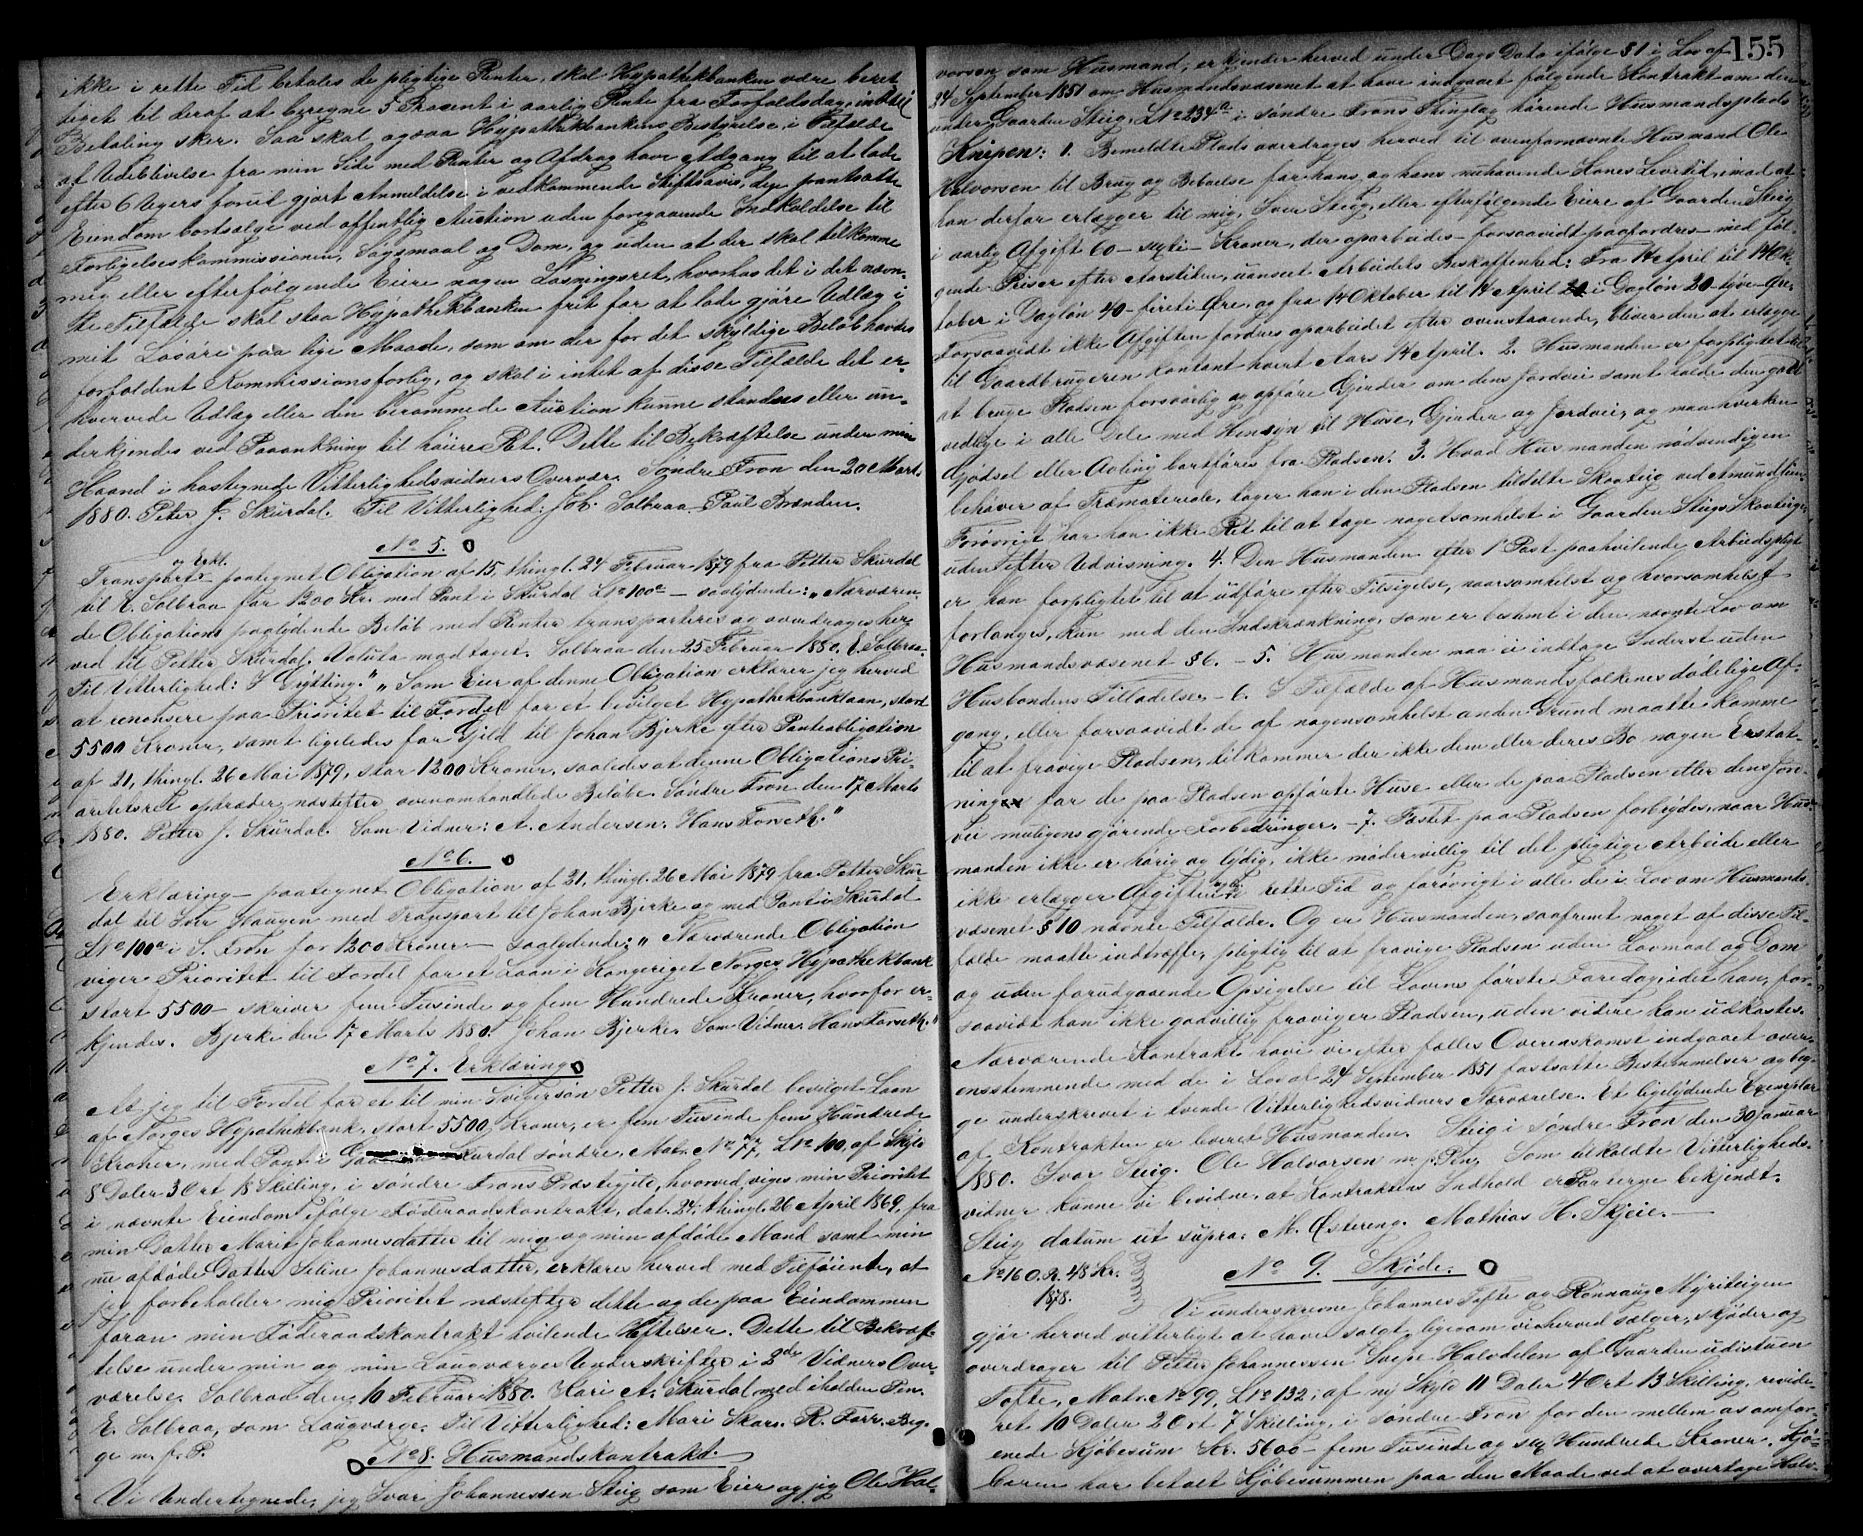 155
ikke i rette Tid betales de pligtige Renter, skal Hypothekbanken være beret
tiget til deraf at beregne 5 Procent i aarlig Rente fra Forfaldsdag, indtil
Betaling sker. Saa skal ogsaa Hypothekbankens Bestyrelse i Tilfælde
af Udeblivelse fra min Side med Renter og Afdrag have Adgang til at lade
efter 6 Ugers forud gjort Anmeldelse i vedkommende Stiftsavis, den pantsatte
Eiendom bortsælge ved offentlig Auction uden foregaaende Indkaldelse til
Forligelseskommissionen, Søgsmaal og Dom, og uden at der skal tilkomme
mig eller efterfølgende Eiere nogen Løsningsret, hvorhos det i det nævn-
te Tilfælde skal staa Hypothekbanken frit for at lade gjøre Udlæg i
mit Løsøre paa lige Maade, som om der for det skyldige Beløb havdes
forfaldent Kommissionsforlig, og skal i intet af disse Tilfælde det er-
hvervede Udlæg eller den berammede Auction kunne standses eller un-
derkjendes ved Paaankning til høiere Ret. Dette til Bekræftelse under min
Haand i hostegnede Vitterlighedsvidners Overvær. Søndre Fron den 20 Marts
1880. Peter J. Skurdal. Til Vitterlighed: Joh. Solbraa. Paul Brænden.
No 5.
Transport og Erkl. paategnet Obligation af 15, thingl. 24 Februar 1879 fra Petter Skurdal
til E. Solbraa for 1200 Kr. med Pant i Skurdal LNo 100a – saalydende: „Nærværen-
de Obligations paalydende Beløb med Renter transporteres og overdrages her-
ved til Petter Skurdal. Valuta modtaget. Solbraa den 25 Februar 1880. E. Solbraa.
Til Vitterlighed: J Grytting." „Som Eier af denne Obligation erklærer jeg herved
at renonsere paa Prioritet til Fordel for et bevilget Hypothekbanklaan, stort
5500 Kroner, samt ligeledes for Gjeld til Johan Bjerke efter Panteobligation
af 21, thingl. 26 Mai 1879, stor 1200 Kroner, saaledes at denne Obligations Pri-
oritetsret optræder næstefter ovenomhandlede Beløbe. Søndre Fron den 17 Marts
1880. Petter J. Skurdal. Som Vidner: A. Andersen. Hans Forseth."
No 6.
Erklæring – paategnet Obligation af 21, thingl. 26 Mai 1879 fra Petter Skur-
dal til Iver Haugen med Transport til Johan Bjerke og med Pant i Skurdal
LNo 100a i S. Fron for 1200 Kroner – saalydende: „Nærværende Obligation
viger Prioritet til Fordel for et Laan i Kongeriget Norges Hypothekbank
stort 5500 – skriver fem Tusinde og fem Hundrede Kroner, hvorfor er-
kjendes. Bjerke den 17 Marts 1880. Johan Bjerke. Som Vidner: Hans Forseth."
No 7. Erklæring
At jeg til Fordel for et til min Svigersøn Petter J. Skurdal bevilget Laan
af Norges Hypothekbank, stort 5500 Kroner, er fem Tusinde fem Hundrede
Kroner, med Pant i Skurdal søndre, Matr. No 77, LNo 100, af Skyld
8 Daler 3 Ort 18 Skilling, i søndre Frons Præstegjeld, hvorved viges min Prioritet
i nævnte Eiendom ifølge Føderaadskontrakt, dat. 24, thingl. 26 April 1869, fra
min Datter Marit Johannesdatter til mig og min afdøde Mand samt min
nu afdøde Datter Eline Johannesdatter, erklæres herved med Tilføiende, at
jeg forbeholder mig Prioritet næstefter dette og de paa Eiendommen
foran min Føderaadskontrakt hvilende Heftelser. Dette til Bekræf-
telse under min og min Laugværges Underskrifter i 2de Vidners Over-
værelse. Solbraa den 10 Februar 1880. Kari A. Skurdal med iholden Pen.
E. Solbraa, som Laugværge. Til Vitterlighed: Mari Skar. R. Forr. Beg-
ge m. f. P.
No 8. Husmandskontrakt.
Vi Undertegnede, jeg Ivar Johannessen Steig som Eier og jeg Ole Hal-
vorsen som Husmand, erkjender herved under Dags Dato ifølge § 1 i Lov af
24 September 1851 om Husmandsvæsenet at have indgaaet følgende Kontrakt om den
under Gaarden Steig, LNo 234a i søndre Frons Thinglag hørende Husmandsplads
Knipen: 1. Bemeldte Plads overdrages herved til ovenfornævnte Husmand Ole
Halvorsen til Brug og Beboelse for hans og hans nuhavende Kones Levetid, imod at
han derfor erlægger til mig, Iver Steig, eller efterfølgende Eiere af Gaarden Steig
i aarlig Afgift 60 – sexti – Kroner, der oparbeides – forsaavidt paafordres – med føl-
gende Priser efter Aarstiden, uanseet Arbeidets Beskaffenhed: Fra 14 April til 14 Ok-
tober i Dagløn 40 – firti Øre, og fra 14 Oktober til 14 April i Dagløn 20 – tyve – Øre.
Forsaavidt ikke Afgiften fordres oparbeidet efter ovenstaaende, bliver den at erlægge
til Gaardbrugeren kontant hvert Aars 14 April. 2. Husmanden er forpligtet til
at bruge Pladsen forsvarlig og opføre Gjerder om dens Jordvei samt holde den godt
vedlige i alle Dele med Hensyn til Huse, Gjerder og Jordvei, og maa hverken
Gjødsel eller Avling bortføres fra Pladsen. 3. Hvad Husmanden nødvendigen
behøver af Træmateriale, tager han i den Pladsen tildelte Skovteig ved
Forøvrigt har han ikke Ret til at tage nogetsomhelst i Gaarden Steigs Skovteige
uden efter Udvisning. 4. Den Husmanden efter 1ste Post paahvilende Arbeidspligt
er han forpligtet til at udføre efter Tilsigelse, naarsomhelst og hvorsomhelst
forlanges, kun med den Indskrænkning, som er bestemt i den nævnte Lov om
Husmandsvæsenet § 6. – 5. Husmanden maa ei indtage Inderst uden
Husbondens Tilladelse. – 6. I Tilfælde af Husmandsfolkenes dødelige Af-
gang, eller forsaavidt de af nogensomhelst anden Grund maatte komme
til at fravige Pladsen, tilkommer der ikke dem eller deres Bo nogen Erstat-
ning for de paa Pladsen opførte Huse eller de paa Pladsen eller dens Jord-
vei muligens gjørende Forbedringer. – 7. Fæstet paa Pladsen forbrydes, naar Hus-
manden ikke er hørig og lydig, ikke møder villig til det pligtige Arbeide eller
ikke erlægger Afgiften i rette Tid og forøvrigt i alle de i Lov om Husmands-
væsenet § 10 nævnte Tilfælde. Og er Husmanden, saafremt noget af disse Til-
fælde maatte indtræffe, pligtig til at fravige Pladsen uden Lovmaal og Dom
og uden forudgaaende Opsigelse til Lovens første Faredag, idet han, for-
saavidt han ikke godvillig fraviger Pladsen, uden videre kan udkastes.
Nærværende Kontrakt have vi efter fælles Overenskomst indgaaet over-
ensstemmende med de i Lov af 24 September 1851 fastsatte Bestemmelser og beg-
ge underskrevet i tvende Vitterlighedsvidners Nærværelse. Et ligelydende Exemplar
af Kontrakten er leveret Husmanden. Steig i Søndre Fron den 30 Januar
1880. Ivar Steig. Ole Halvorsen m. f. Pen. Som tilkaldte Vitterligheds-
vidner kunne vi bevidne, at Kontraktens Indhold er Parterne bekjendt.
Steig datum ut supra: M. Østereng. Mathias H. Skjeie.
No 9. Skjøde.
No 160. R. 48 Kr.
1878.
Vi underskrevne Johannes Tofte og Rønnaug Myrteigen
gjør herved vitterligt at have solgt, ligesom vi herved sælger, skjøder og
overdrager til Petter Johannessen Svepe Halvdelen af Gaarden udistuen
Tofte, Matr. No 99, LNo 132, af ny Skyld 11 Daler 4 Ort 13 Skilling, revide-
ret 10 Daler 2 Ort 7 Skilling, i Søndre Fron for den mellem os omfor-
enede Kjøbesum Kr. 5600 – fem Tusinde og sex Hundrede Kroner. Kjø-
beren har betalt Kjøbesummen paa den Maade ved at overtage Halv-